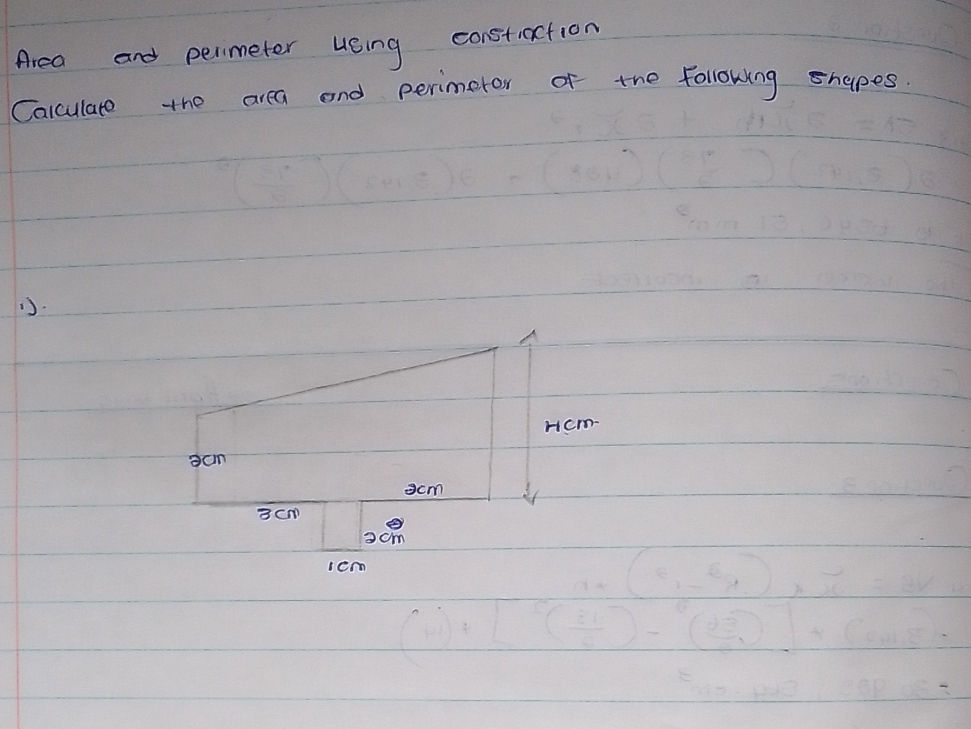 Area and perimeter using construction
Calculate the area and perimeter of the following shapes.
1).
4cm
2cm
2cm
3cm
2cm
1cm